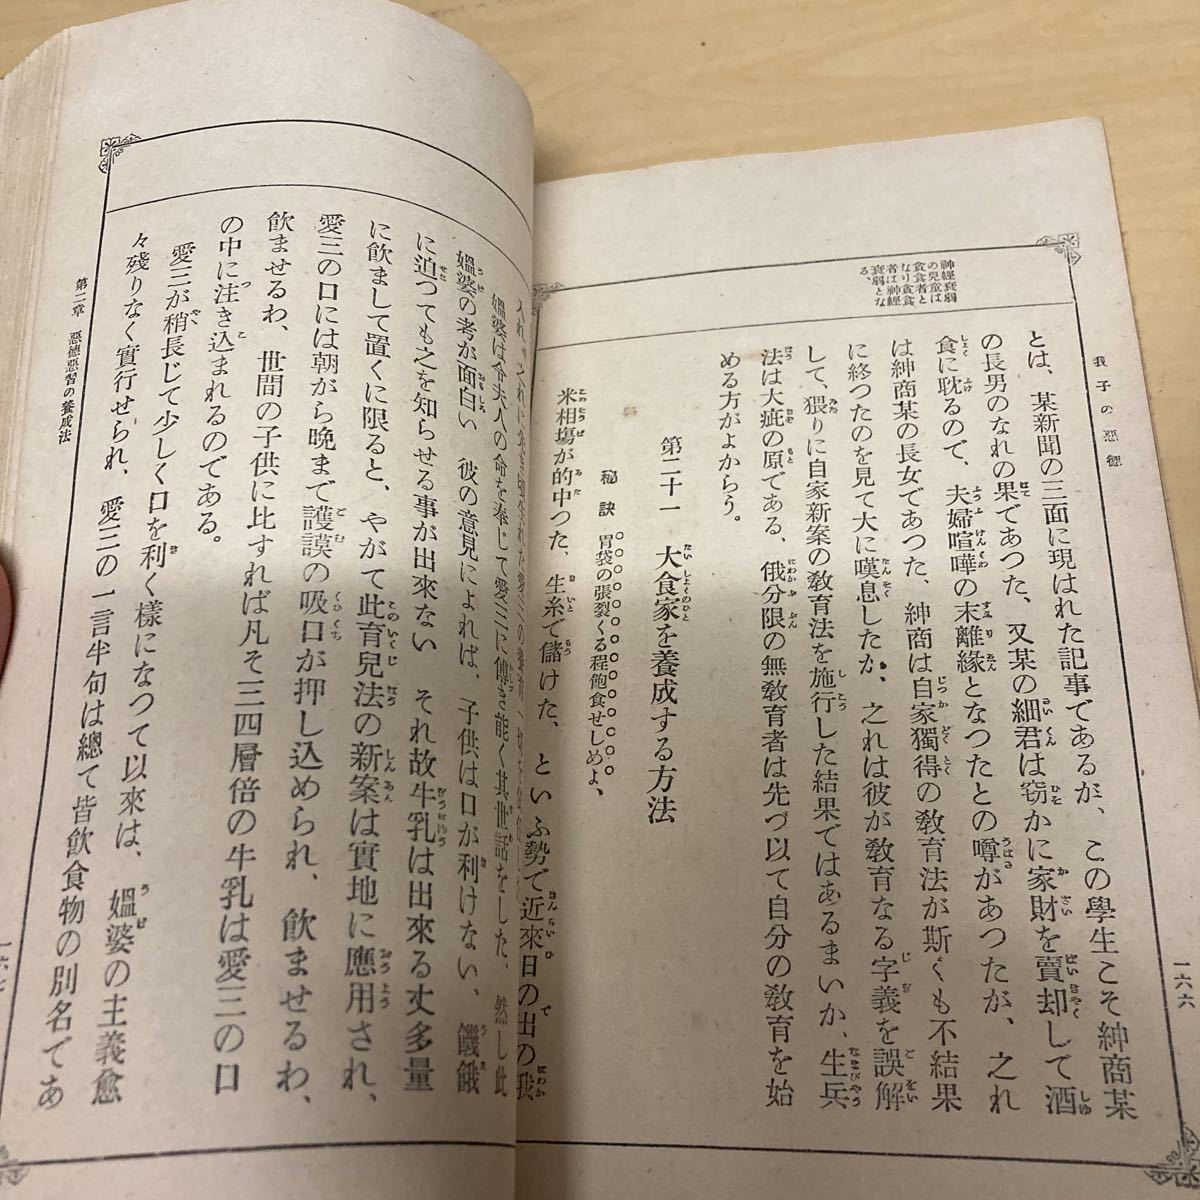 我子の惡德
一六六
神經衰弱
の兒童は
貪食者と
なり貪食
者は神經
衰弱とな
る、
とは、某新聞の三面に現はれた記事であるが、この學生こそ紳商某
の長男のなれの果であつた、又某の細君は窃かに家財を賣却して酒
食に耽るので、夫婦喧嘩の末離緣となつたとの噂があつたが、之れ
は紳商某の長女であつた、紳商は自家獨得の敎育法が斯くも不結果
に終つたのを見て大に嘆息したが、之れは彼が敎育なる字義を誤解
して、猥りに自家新案の敎育法を施行した結果ではあるまいか、生兵
法は大疵の原である、俄分限の無敎育者は先づ以て自分の敎育を始
める方がよからう。
第二十一 大食家を養成する方法
秘訣 胃袋の張裂くる程飽食せしめよ、
米相場が的中つた、生糸で儲けた、といふ勢で近來日の出の我
媼婆は令夫人の命を奉じて愛三に傅き能く其世話をした、然し此
媼婆の考が面白い 彼の意見によれば、子供は口が利けない、饑餓
に迫つても之を知らせる事が出來ない それ故牛乳は出來る丈多量
に飮まして置くに限ると、やがて此育兒法の新案は實地に應用され、
愛三の口には朝から晚まで護謨の吸口が押し込められ、飮ませるわ、
飮ませるわ、世間の子供に比すれば凡そ三四層倍の牛乳は愛三の口
の中に注き込まれるのである。
愛三が稍長じて少しく口を利く樣になつて以來は、媼婆の主義愈
々殘りなく實行せられ、愛三の一言半句は總て皆飮食物の別名であ
第二章 惡德惡習の養成法